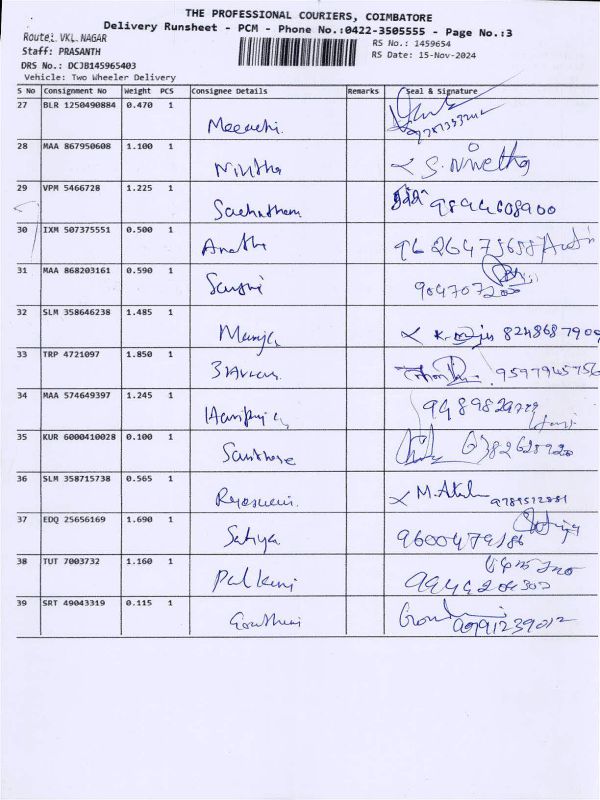 THE PROFESSIONAL COURIERS, COIMBATORE
Delivery Runsheet - PCM - Phone No.:0422-3505555 - Page No.:3
Route: VKL NAGAR
RS No.: 1459654
Staff: PRASANTH
RS Date: 15-Nov-2024
DRS No.: DCJB145965403
Vehicle: Two Wheeler Delivery
S No Consignment No Weight PCS Consignee Details Remarks Seal & Signature
27 BLR 1250490884 0.470 1 Meenachi.
28 MAA 867950608 1.100 1 Nivitha S. Nivetha
29 VPM 5466728 1.225 1 9894608900
30 IXM 507375551 0.500 1
31 MAA 868203161 0.590 1
32 SLM 358646238 1.485 1 Manja 8248687909
33 TRP 4721097 1.850 1 9597945756
34 MAA 574649397 1.245 1 Haripriya
35 KUR 6000410028 0.100 1 Santhose
36 SLM 358715738 0.565 1 9789512881
37 EDQ 25656169 1.690 1 Sathya 9600479186
38 TUT 7003732 1.160 1 Palkani
39 SRT 49043319 0.115 1 Gowthami 9791239012